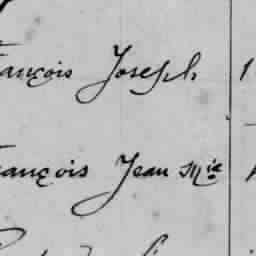 ançois Joseph 1
ançois Jean Mie